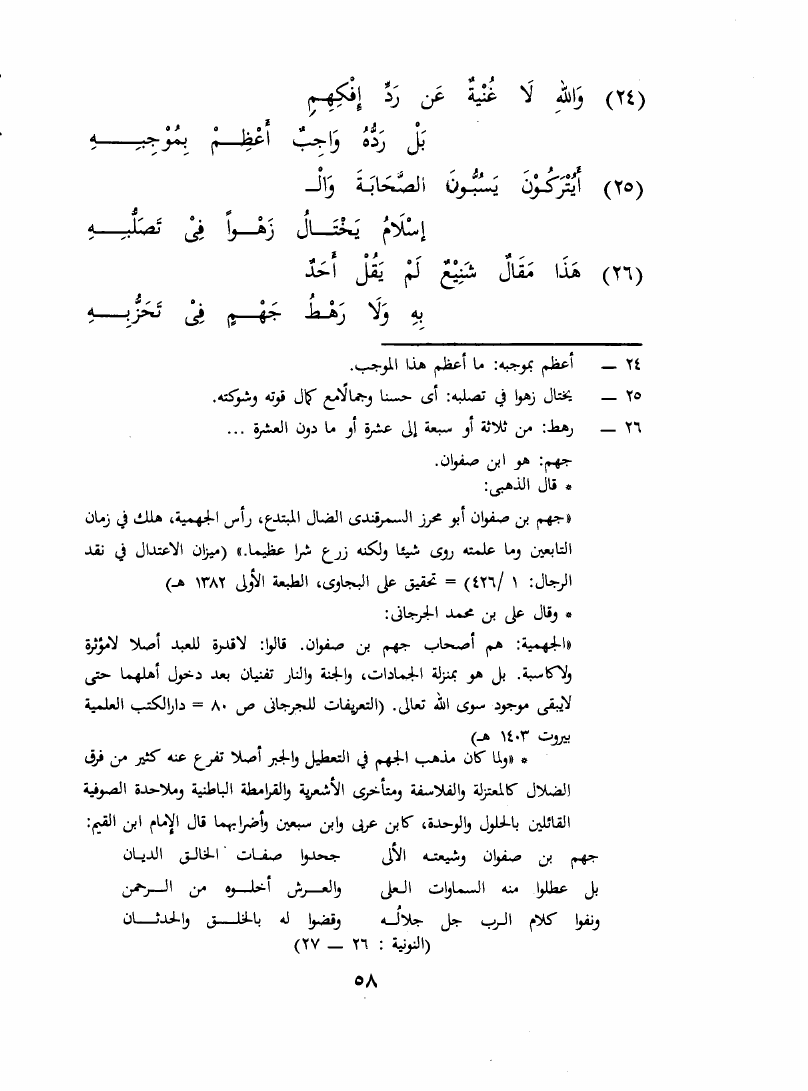 (٢٤) وَاللهِ لَا غُنْيَةٌ عَن رَدِّ إِفْكِهِمِ
بَل رَدُّهُ وَاجِبٌ أَعْظِمْ بِمُوْجِبِهِ
(٢٥) أَيُتْرَكُوْنَ يَسُبُّونَ الصَّحَابَةَ وَالْـ
إِسْلَامُ يَخْتَالُ زَهْواً فِىْ تَصَلُّبِهِ
(٢٦) هَذَا مَقَالٌ شَنِيْعٌ لَمْ يَقُلْ أَحَدٌ
بِهِ وَلَا رَهْطُ جَهْمٍ فِىْ تَحَزُّبِهِ
٢٤ — أعظم بموجبه: ما أعظم هذا الموجب.
٢٥ — يختال زهوا في تصلبه: أى حسنا وجمالا مع كمال قوته وشوكته.
٢٦ — رهط: من ثلاثة أو سبعة إلى عشرة أو ما دون العشرة ...
جهم: هو ابن صفوان.
* قال الذهبى:
«جهم بن صفوان أبو محرز السمرقندى الضال المبتدع، رأس الجهمية، هلك في زمان
التابعين وما علمته روى شيئا ولكنه زرع شرا عظيما.» (ميزان الاعتدال في نقد
الرجال: ١ /٤٢٦) = تحقيق على البجاوى، الطبعة الأولى ١٣٨٢ هـ)
* وقال على بن محمد الجرجانى:
«الجهمية: هم أصحاب جهم بن صفوان. قالوا: لاقدرة للعبد أصلا لامؤثرة
ولاكاسبة. بل هو بمنزلة الجمادات، والجنة والنار تفنيان بعد دخول أهلهما حتى
لايبقى موجود سوى الله تعالى. (التعريفات للجرجانى ص ٨٠ = دارالكتب العلمية
بيروت ١٤٠٣ هـ)
* «ولما كان مذهب الجهم في التعطيل والجبر أصلا تفرع عنه كثير من فرق
الضلال كالمعتزلة والفلاسفة ومتأخرى الأشعرية والقرامطة الباطنية وملاحدة الصوفية
القائلين بالحلول والوحدة، كابن عربى وابن سبعين وأضرابهما قال الإمام ابن القيم:
جهم بن صفوان وشيعته الألى جحدوا صفات الخالق الديان
بل عطلوا منه السماوات العلى والعرش أخلوه من الرحمن
ونفوا كلام الرب جل جلالُه وقضوا له بالخلق والحدثان
(النونية : ٢٦ — ٢٧)
٥٨